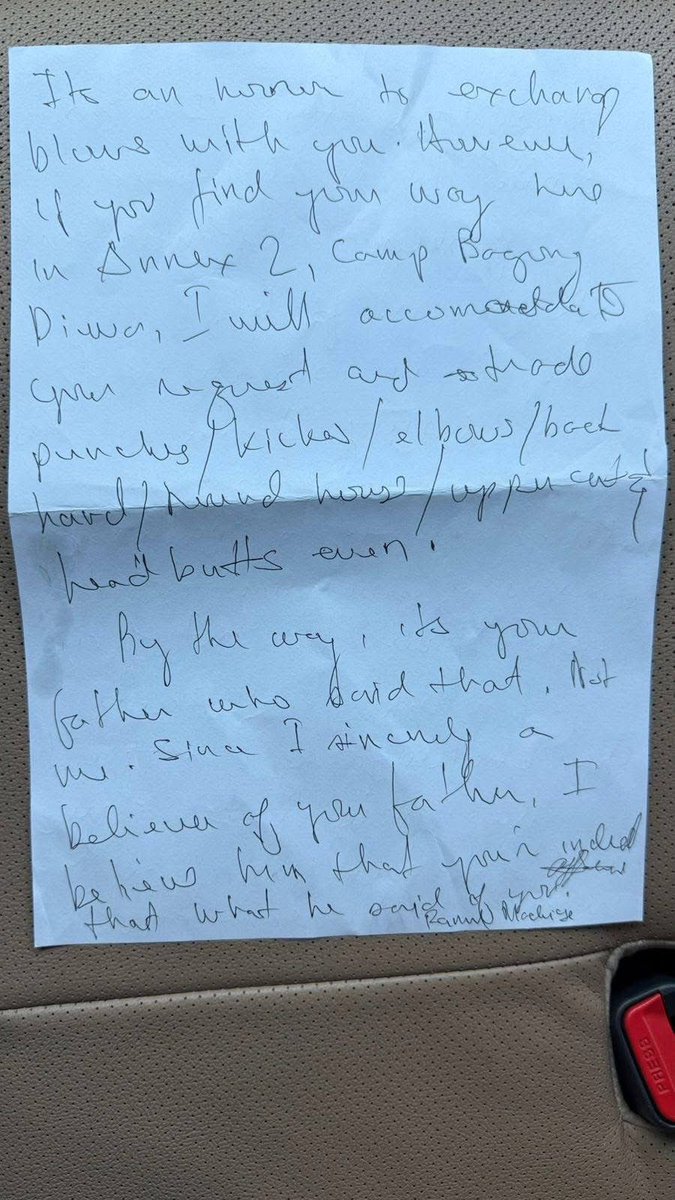 Its an honor to exchang
blows with you. However,
if you find your way here
in Annex 2, Camp Bagong
Diwa, I will accommodate
your request and trade
punches/kicks/elbows/back
hand/round house/uppercut &
head butts even.
By the way, its your
father who said that. Not
me. Since I sincerely a
believer of your father, I
believe him that you're indeed
that what he said of you.
PRESS